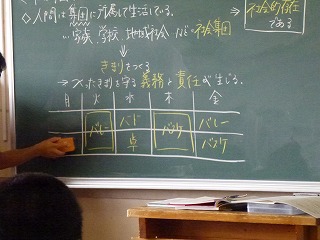 ◇人間は集団に所属して生活している。
…家族、学校、地域社会などの社会集団
社会的存在
である
↓
きまりをつくる
→ 義務と責任が生じる。
月 火 水 木 金
バレー バド バスケ バレー
卓 バスケ